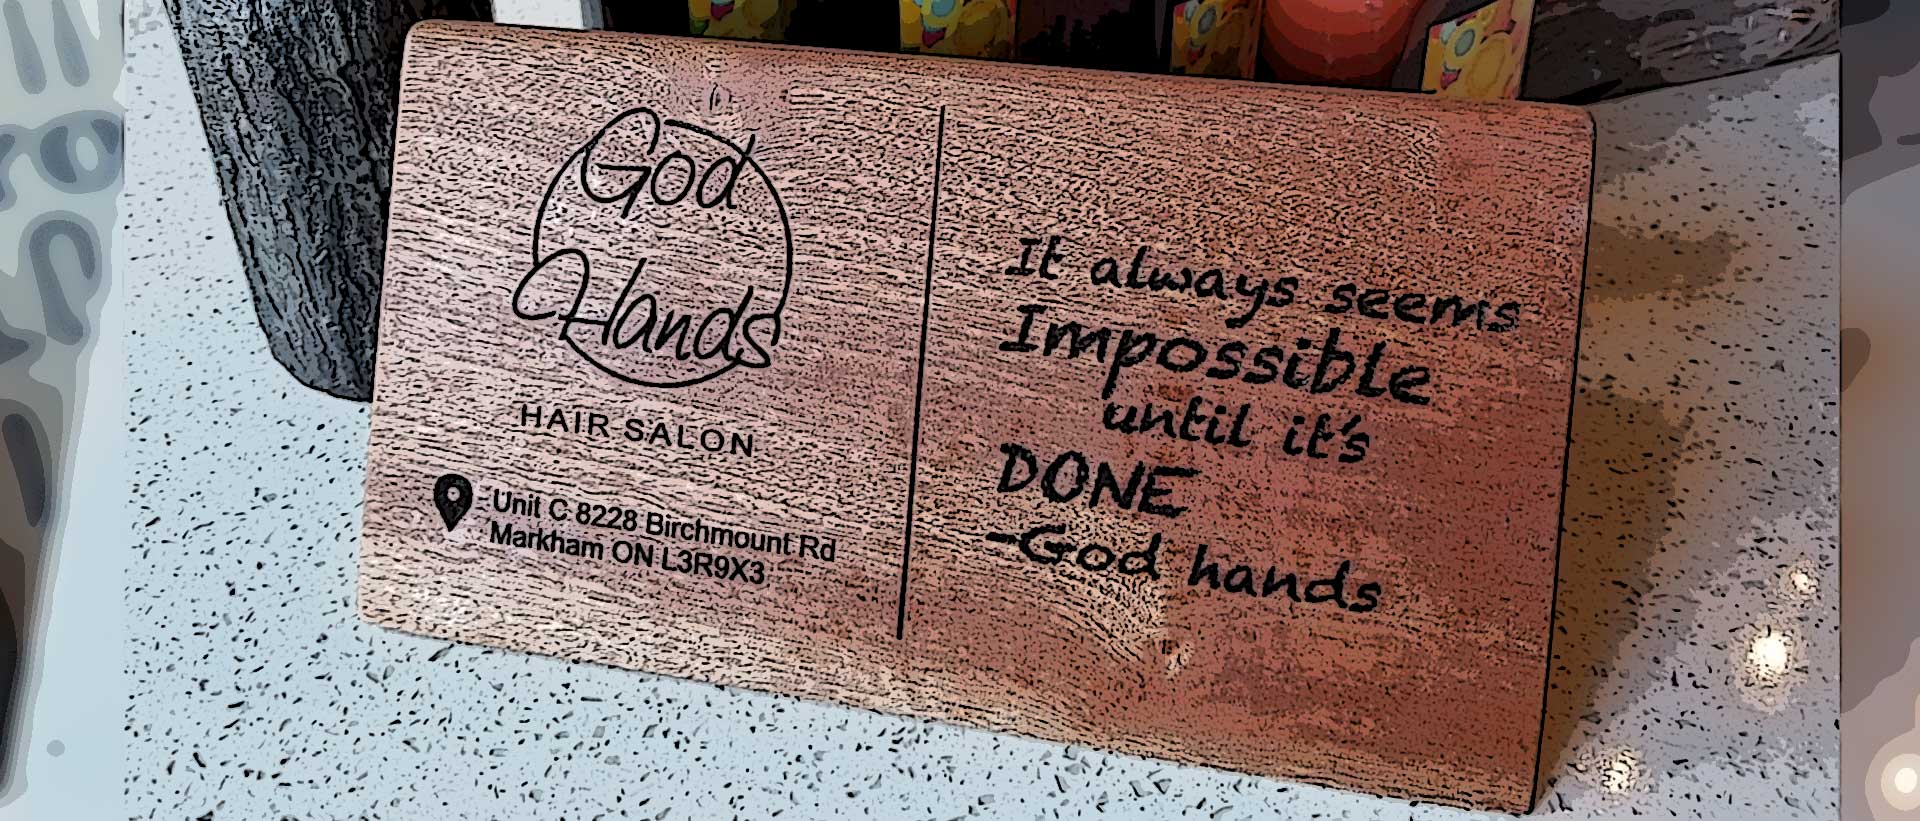 God
Hands
HAIR SALON
Unit C 8228 Birchmount Rd
Markham ON L3R9X3
It always seems
Impossible
until it's
DONE
-God hands